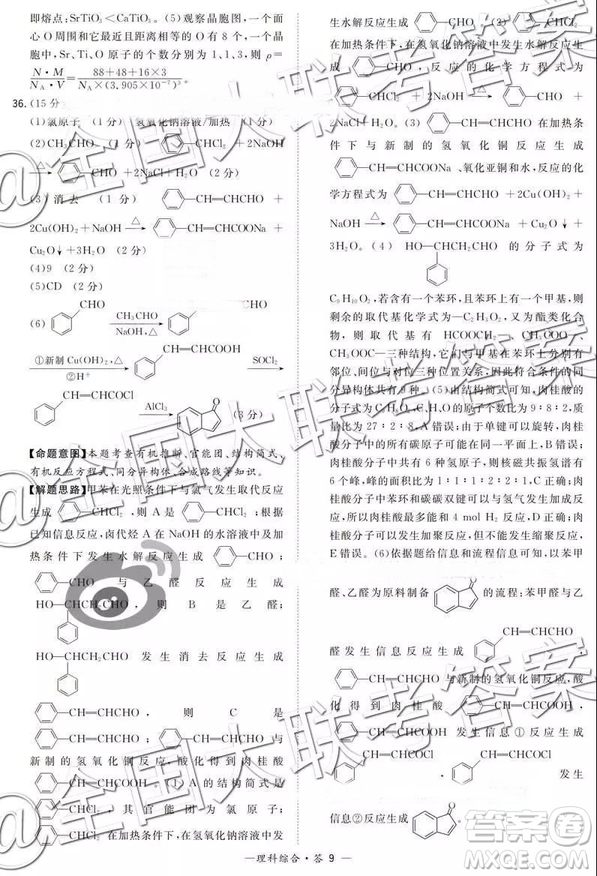 即熔点：SrTiO₃＜CaTiO₃。(5)观察晶胞图，一个面
心O周围和它最近且等距离的O有8个，一个晶
胞中，Sr、Ti、O原子的个数分别为1、1、3，则ρ=
N·M/N_A·V = 88+48+16×3/N_A×(3.905×10⁻⁸)³。
36.(15分)
(1)氯原子 (1分) 氢氧化钠溶液/加热 (1分)
(2)CH₃CHO (1分) CHCl₂+2NaOH
△→ CHO+2NaCl+H₂O (2分)
(3)消去 (1分) CH═CHCHO+
2Cu(OH)₂+NaOH △→ CH═CHCOONa+
Cu₂O↓+3H₂O (2分)
(4)9 (2分)
(5)CD (2分)
(6) CHO CH₃CHO/NaOH,△→ CH═CHCHO
①新制Cu(OH)₂,△/②H⁺→ CH═CHCOOH SOCl₂→
CH═CHCOCl AlCl₃→ O (3分)
【命题意图】本题考查有机推断、官能团、结构简式、
有机反应方程式、同分异构体、合成路线等知识。
【解题思路】甲苯在光照条件下与氯气发生取代反应
生成 CHCl₂，则A是 CHCl₂；根
据已知信息反应，卤代烃A在NaOH的水溶液中及加
热条件下发生水解反应生成 CHO；
CHO与乙醛反应生成
HO—CHCH₂CHO，则B是乙醛；
HO—CHCH₂CHO发生消去反应生成
CH═CHCHO，则C是
CH═CHCHO；CH═CHCHO与
新制的氢氧化铜反应，酸化得到肉桂酸
CH═CHCOOH。(1)A的结构简式是
CHCl₂，其官能团为氯原子；
CHCl₂在加热条件下，在氢氧化钠溶液中发
生水解反应生成 CHO。(2) CHCl₂
在加热条件下，在氢氧化钠溶液中发生水解反应生成
CHO，反应的化学方程式为
CHCl₂+2NaOH △→ CHO+
2NaCl+H₂O。(3) CH═CHCHO在加热条
件下与新制的氢氧化铜反应生成
CH═CHCOONa、氧化亚铜和水，反应的化
学方程式为 CH═CHCHO+2Cu(OH)₂
+NaOH △→ CH═CHCOONa+Cu₂O↓
+3H₂O。(4)HO—CHCH₂CHO的分子式为
C₉H₁₀O₂，若其含有一个苯环，且苯环上有一个甲基，则
剩余的取代基化学式为—C₂H₃O₂，又为酯类化合
物，则取代基有HCOOCH₂—、CH₃COO—、
CH₃OOC—三种结构，它们与甲基在苯环上分别有
邻位、间位与对位三种位置关系，因此符合条件的同
分异构体共有9种。(5)由结构简式可知，肉桂酸的
分子式为C₉H₈O₂，则肉桂酸分子中碳、氢、氧的质量比
为27∶2∶8，A错误；由于单键可以旋转，肉桂
酸分子中的所有碳原子可能在同一平面上，B错误；
肉桂酸分子中共有6种氢原子，则核磁共振氢谱有
6个峰，峰面积之比为1∶1∶1∶2∶2∶1，C正确；肉桂
酸分子中苯环和碳碳双键可以与氢气发生加成反
应，所以肉桂酸最多能和4 mol H₂反应，D正确；肉
桂酸可以发生加聚反应，但不能发生缩聚反应，
E错误。(6)依据题给信息和流程信息可知，以苯甲
醛、乙醛为原料制备 O 的流程：苯甲醛与乙
醛发生信息反应生成 CH═CHCHO，
CH═CHCHO与新制的氢氧化铜反应，酸
化得到肉桂酸 CH═CHCOOH，
CH═CHCOOH发生信息①反应生成
CH═CHCOCl，CH═CHCOCl发生
信息②反应生成 O。
—理科综合·答9—
@全国大联考答案
作业帮答案